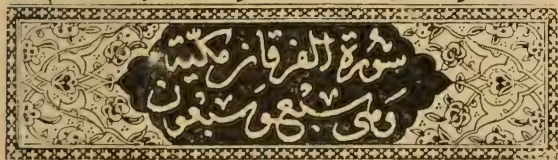 سورة الفرقان مكية
وهي سبع وسبعون